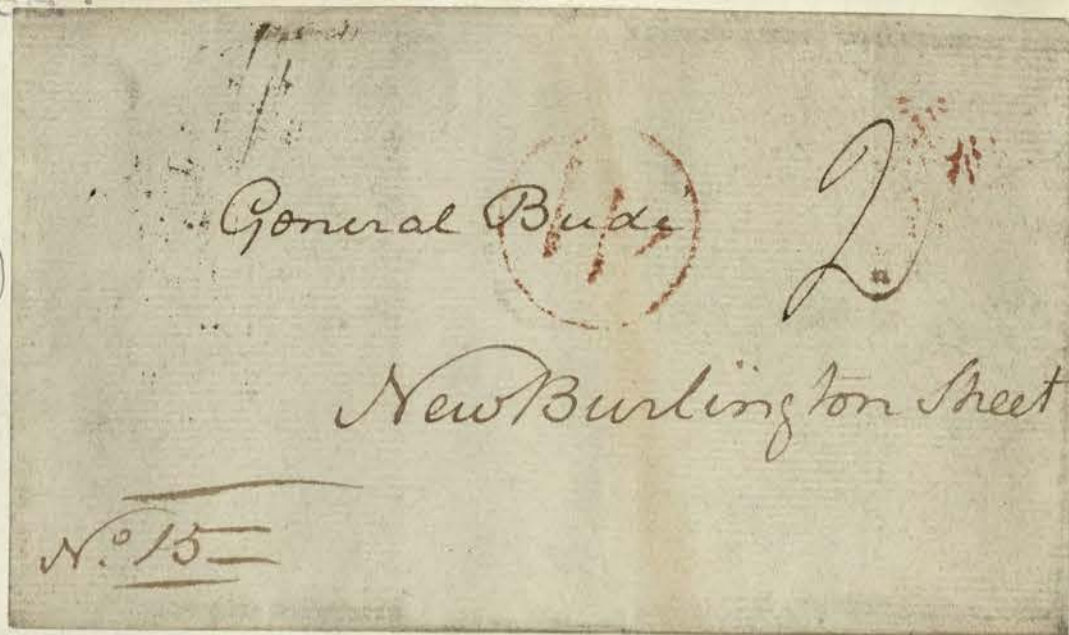 General Bude
2
New Burlington Street
No. 15